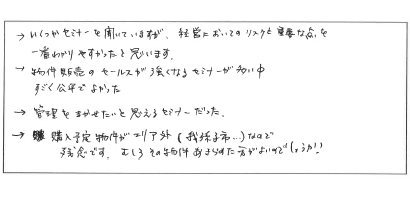 → いくつかセミナーを聞いていますが、経営においてのリスクと重要な点を
一番わかりやすかったと思います。
→ 物件販売のセールスが強くなるセミナーが多い中
すごく公平でよかった
→ 管理をまかせたいと思えるセミナーだった。
→ 購入予定物件がエリア外(我孫子市…)なので
残念です。むしろその物件あきらめた方がよいのでしょうか!